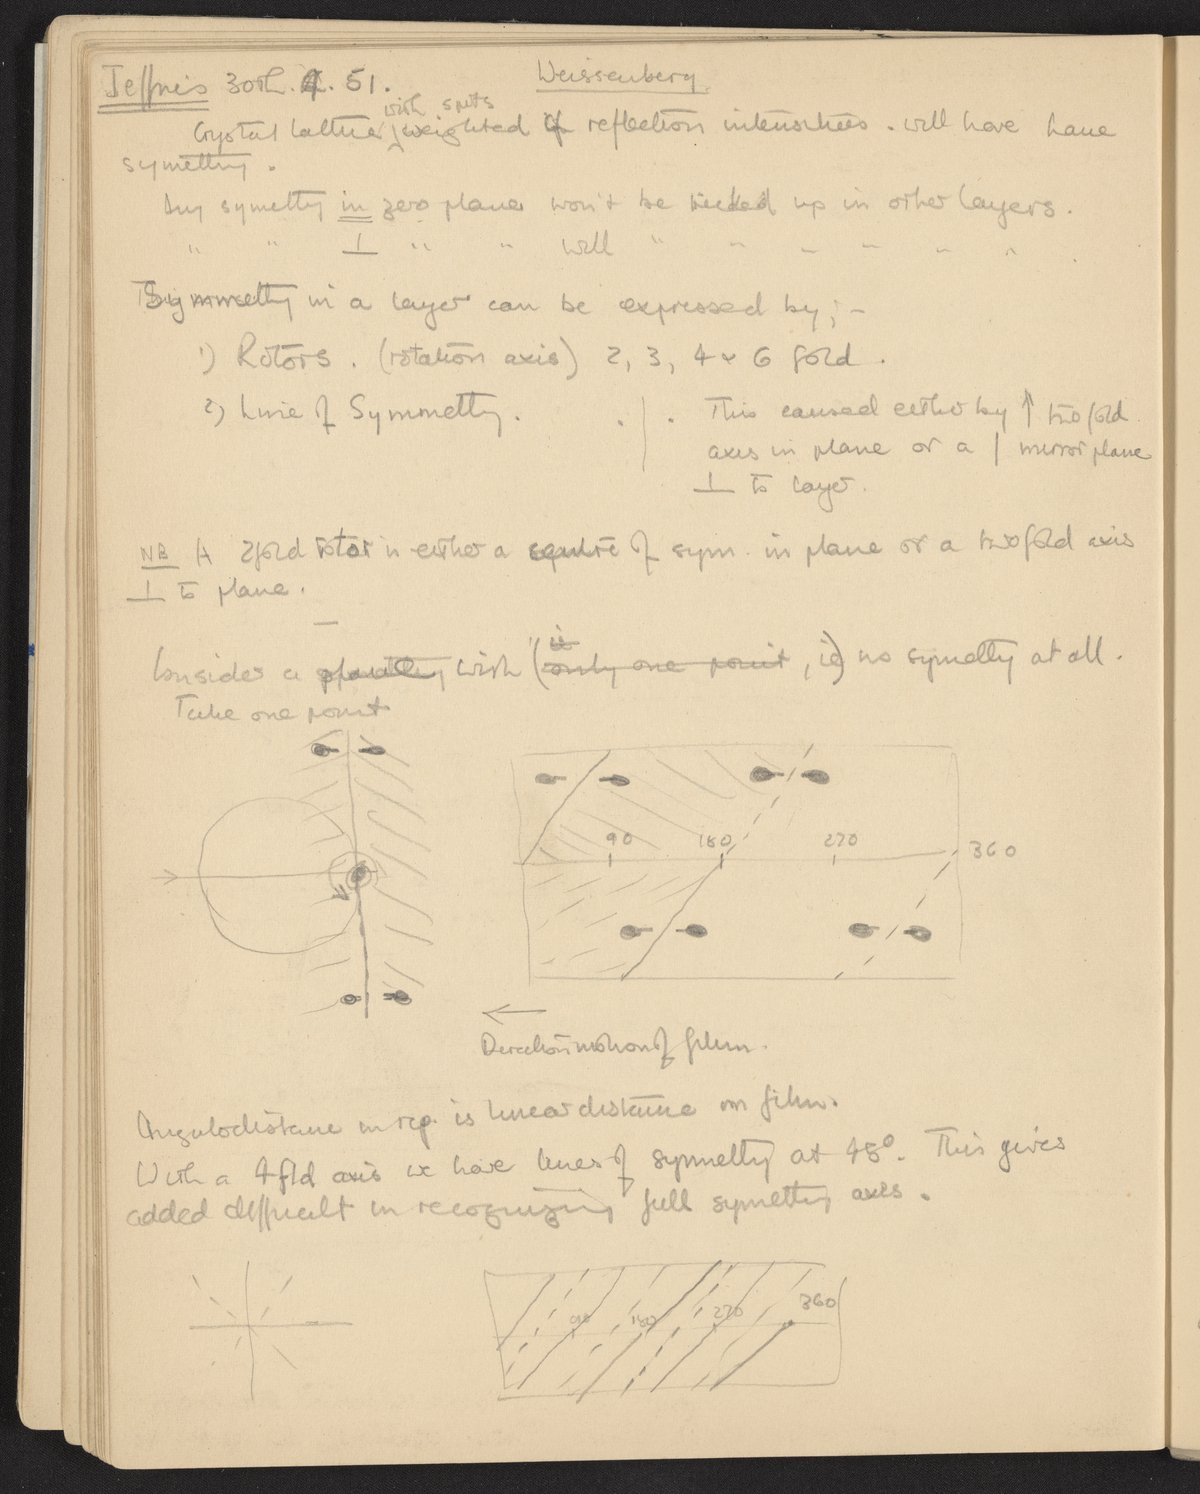 Weissenberg
Jeffries 30th. 4. 51.
with spots
Crystal lattice weighted of reflection intensities. will have have
symettry.
Any symettry in zero plane won't be picked up in other layers.
" " ⊥ " " will " " " " " "
Symmetry in a layer can be expressed by; -
1) Rotors. (rotation axis) 2, 3, 4 & 6 fold.
2) Line of Symmetry. . | . This caused either by ↑ two fold
axis in plane or a | mirror plane
⊥ to layer.
NB A 2 fold rotor is either a centre of sym. in plane or a two fold axis
⊥ to plane.
Consider a with (is only one point, ie) no symetty at all.
Take one point
90 180 270 360
←
Direction motion of film.
Angular distance in rep. is linear distance on film.
With a 4 fld axis we have lines of symmetty at 45°. This gives
added difficult in recognizing full symettry axes.
90 180 270 360